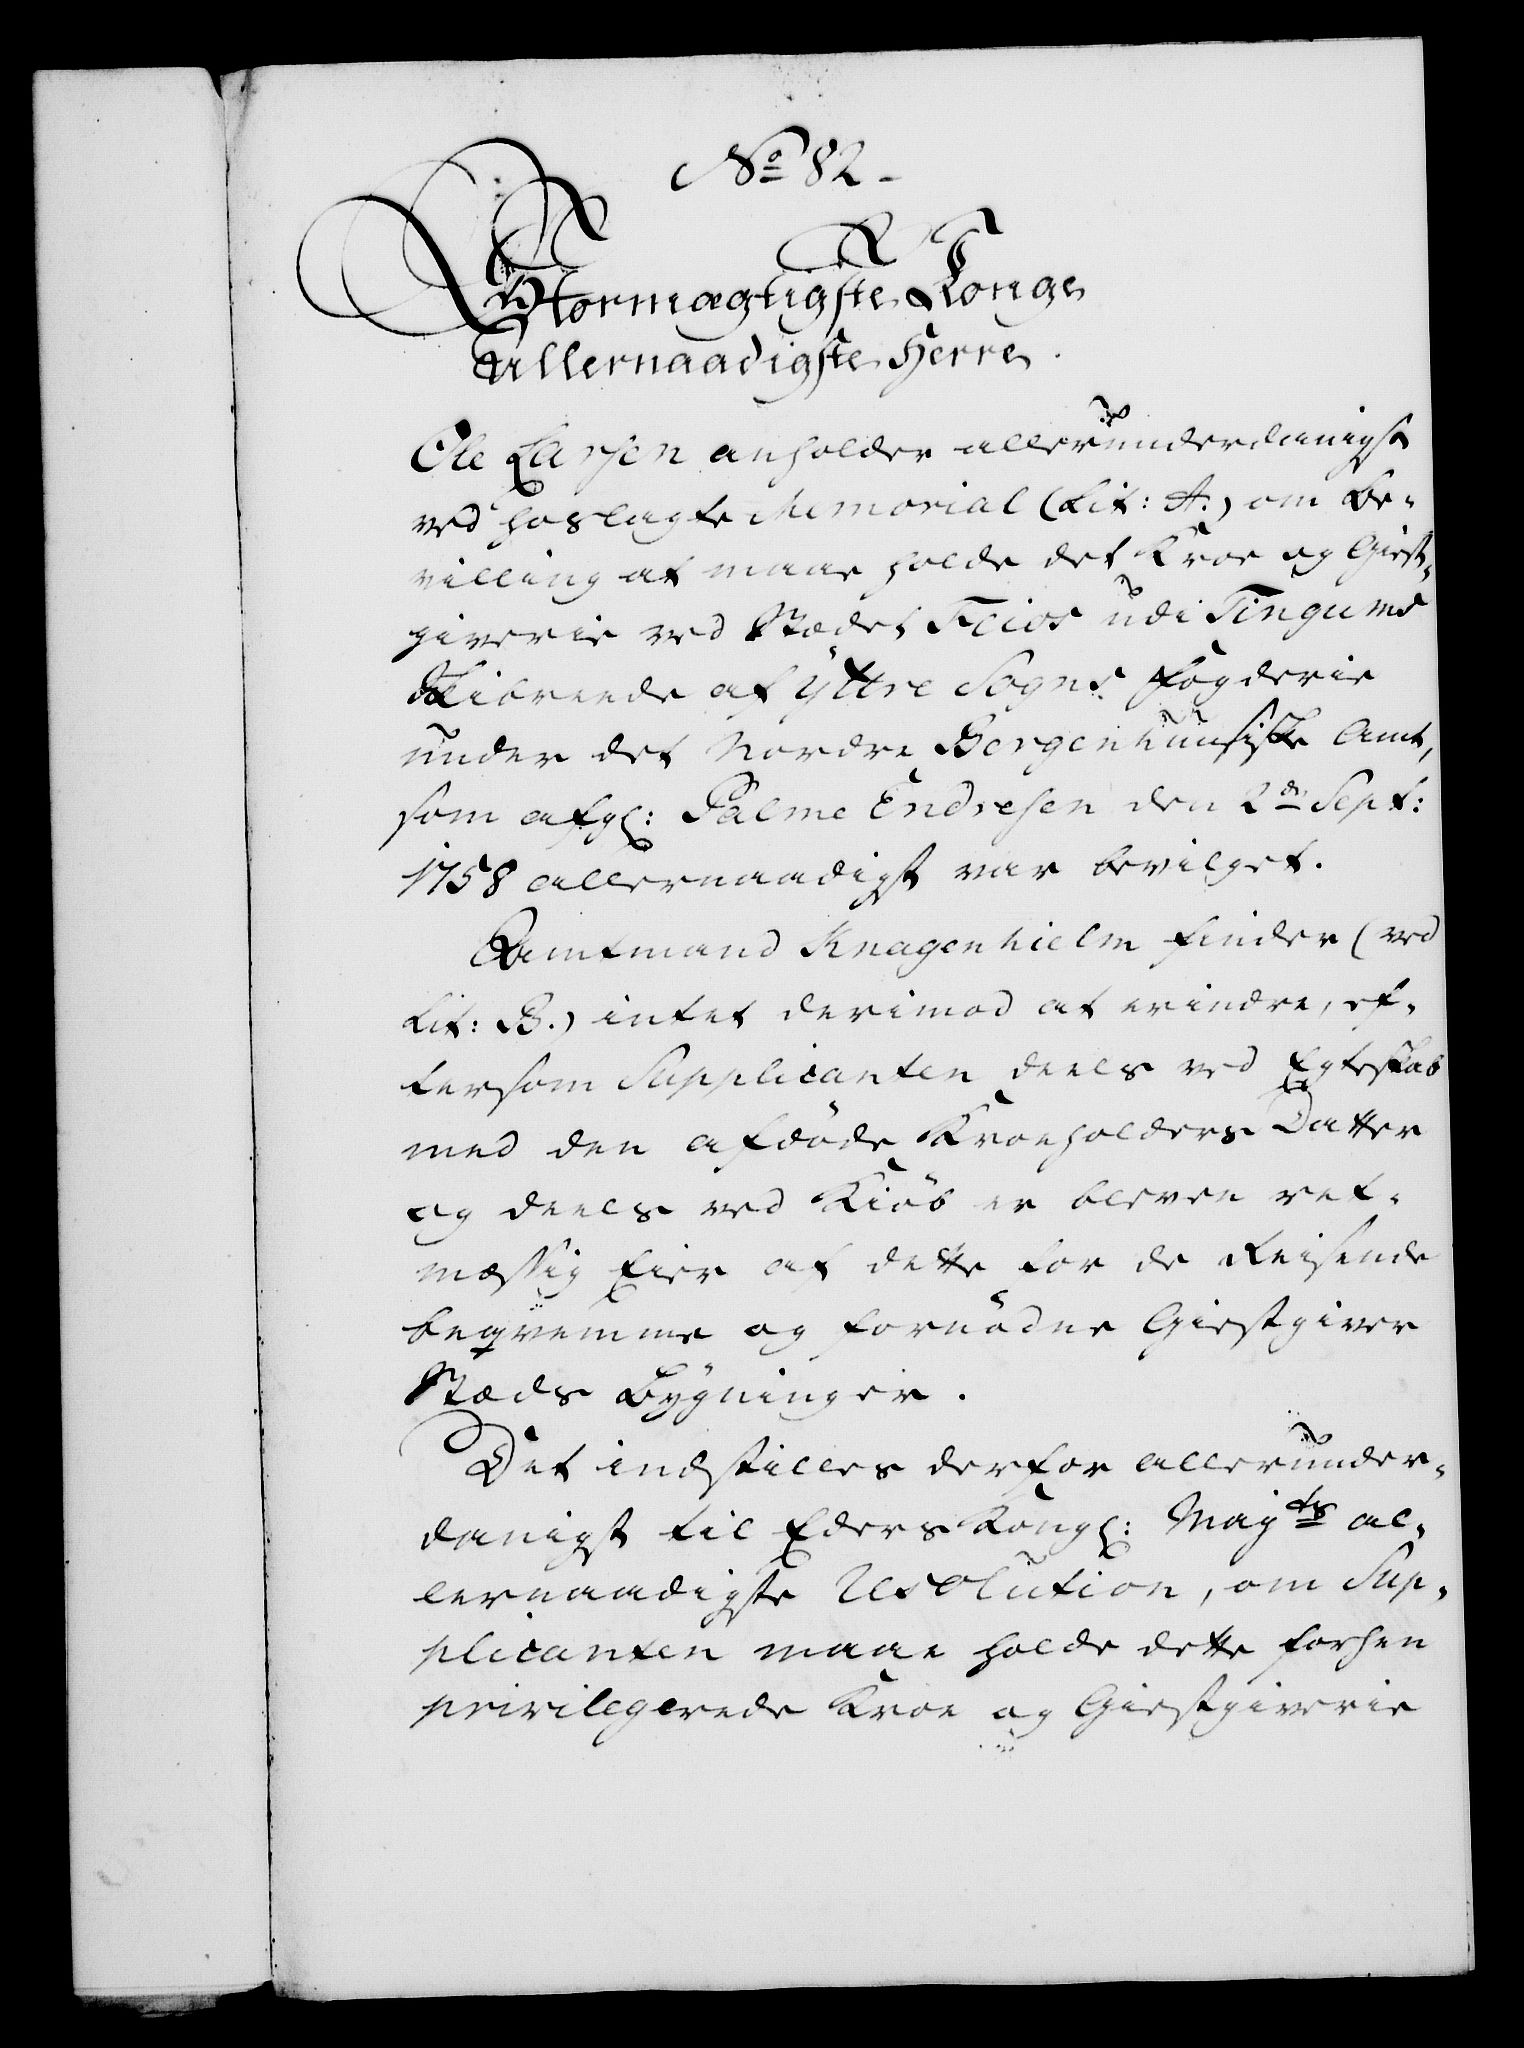 No 82.
Stormægtigste Konge
Allernaadigste Herre.
Ole Larsen anholder allerunderdanigst
ved hoslagte Memorial (Lit: A.) om Be-
villing at maae holde det Kroe og Giest-
giverie ved Stædet Feios udi Tingums
Skibreede af Yttre Sogns Fogderie
under det Nordre Bergenhuusiske Amt,
som afgl: Palme Endresen den 2de Sept:
1758 allernaadigst var bevilget.
Amtmand Knagenhielm finder (ved
Lit: B.) intet derimod at erindre, ef-
tersom Supplicanten deels ved Egteskab
med den afdøde Kroeholders Datter
og deels ved Kiøb er bleven ret-
mæssig Eier af dette for de Reisende
beqvemme og fornødne Giestgiver
Stæds Bygninger.
Det indstilles derfor allerunder-
danigst til Eders Kongl: Mayts al-
lernaadigste Resolution, om Sup-
plicanten maae holde dette forhen
privilegerede Kroe og Giestgiverie